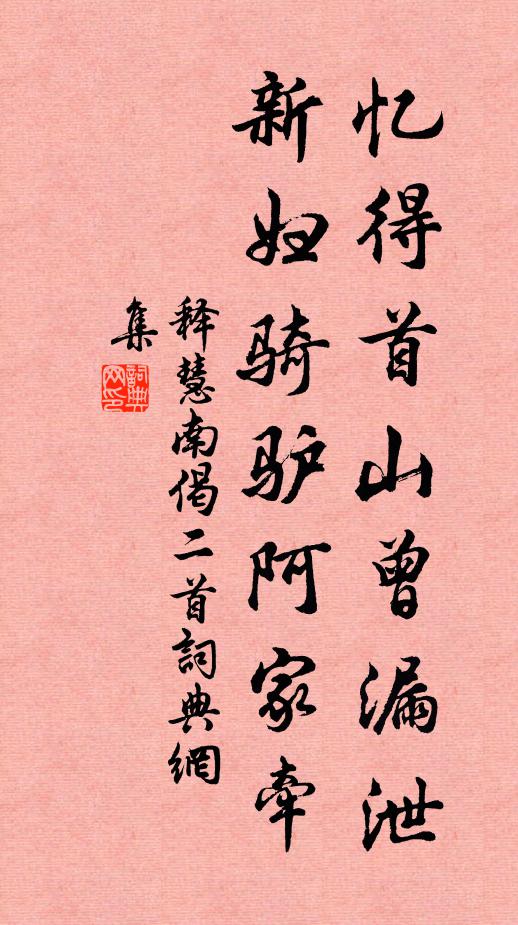 忆得首山曾漏泄
新妇骑驴阿家牵
释慧南偈二首詞典網
集
詞典網印